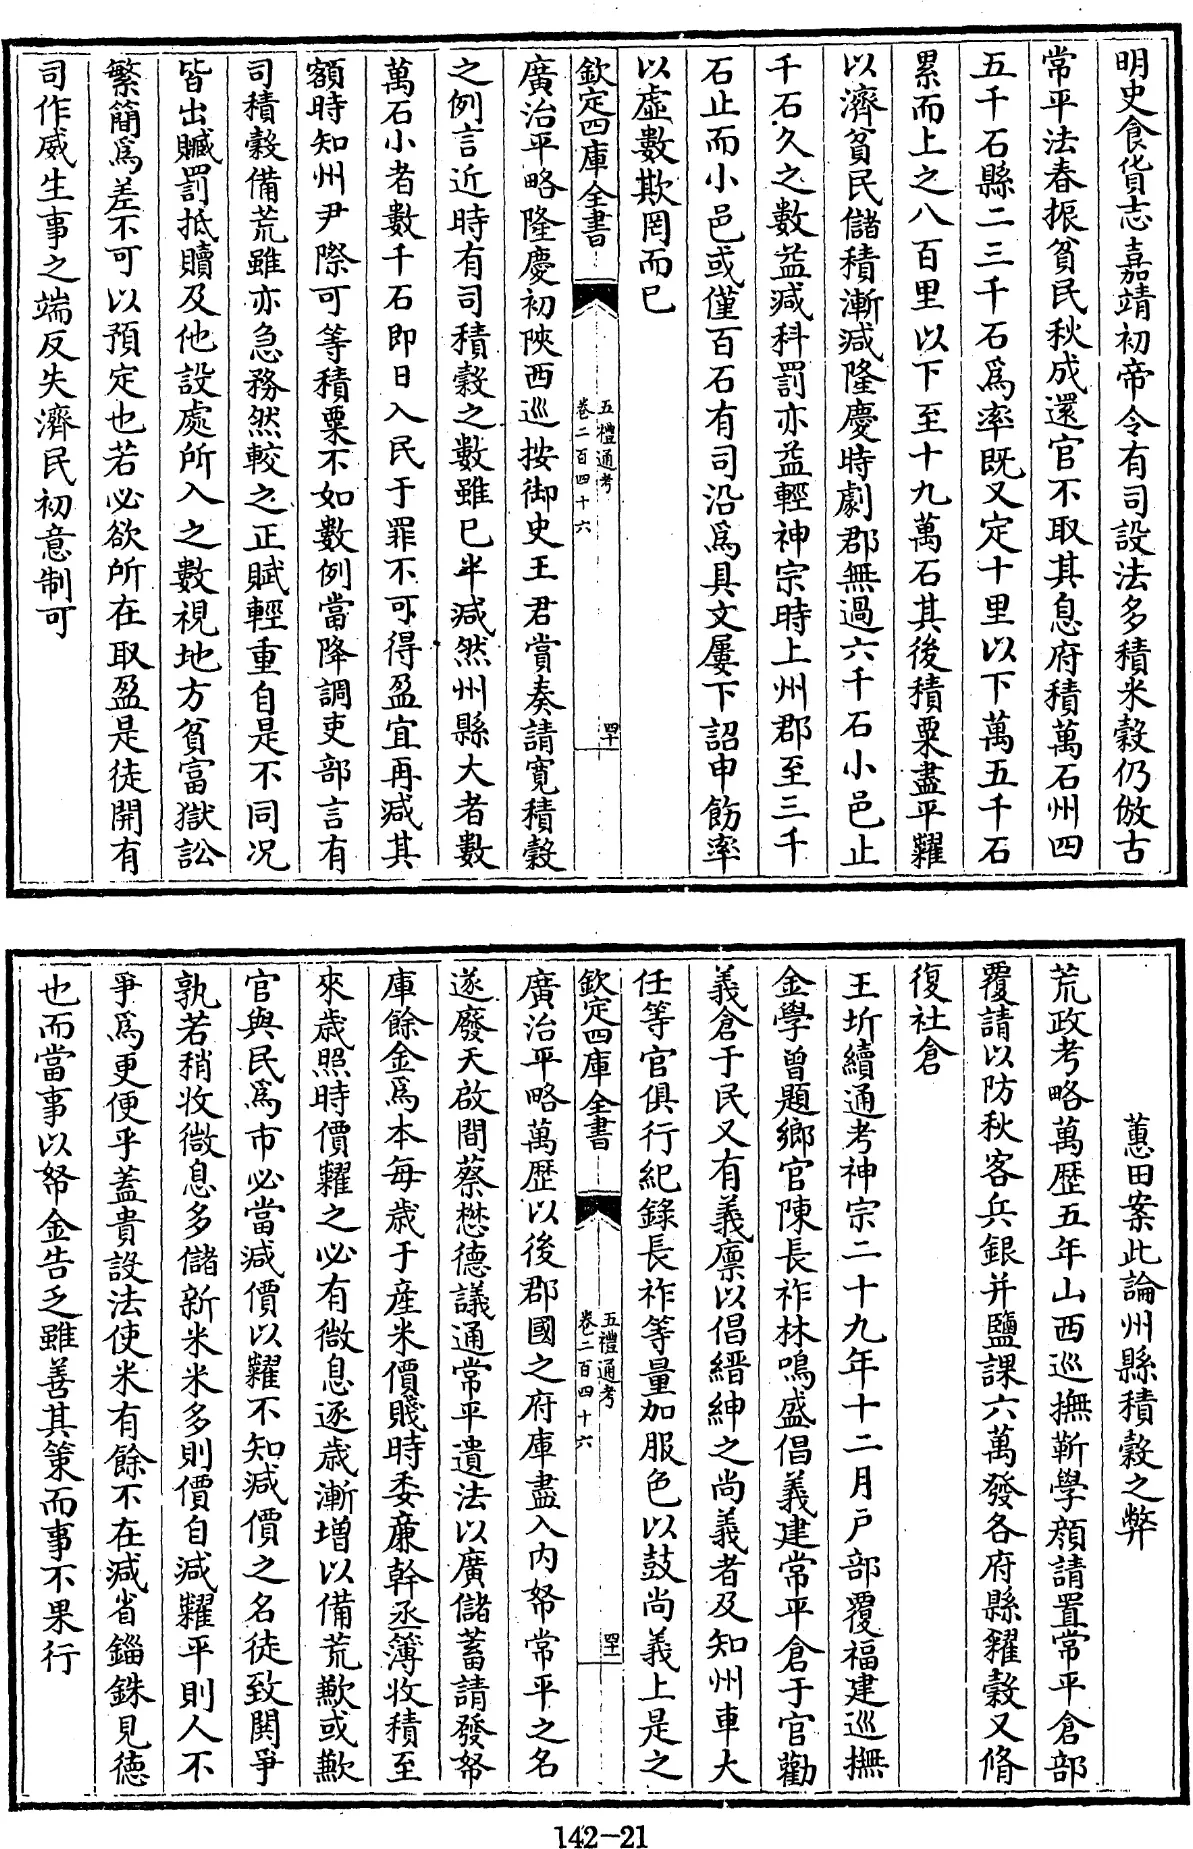 明史食貨志嘉靖初帝令有司設法多積米穀仍倣古
常平法春振貧民秋成還官不取其息府積萬石州四
五千石縣二三千石爲率既又定十里以下萬五千石
累而上之八百里以下至十九萬石其後積粟盡平糶
以濟貧民儲積漸減隆慶時劇郡無過六千石小邑止
千石久之數益減科罰亦益輕神宗時上州郡至三千
石止而小邑或僅百石有司沿爲具文屢下詔申飭率
以虛數欺罔而已
欽定四庫全書
五禮通考
卷二百四十六
四十
廣治平略隆慶初陜西巡按御史王君賞奏請寛積穀
之例言近時有司積穀之數雖已半減然州縣大者數
萬石小者數千石即日入民于罪不可得盈宜再減其
額時知州尹際可等積粟不如數例當降調吏部言有
司積穀備荒雖亦急務然較之正賦輕重自是不同况
皆出贓罰抵贖及他設處所入之數視地方貧富獄訟
繁簡爲差不可以預定也若必欲所在取盈是徒開有
司作威生事之端反失濟民初意制可
蕙田案此論州縣積穀之弊
荒政考略萬歷五年山西巡撫靳學顔請置常平倉部
覆請以防秋客兵銀并鹽課六萬發各府縣糴穀又脩
復社倉
王圻續通考神宗二十九年十二月戶部覆福建巡撫
金學曾題鄉官陳長祚林鳴盛倡義建常平倉于官勸
義倉于民又有義廪以倡縉紳之尚義者及知州車大
任等官俱行紀錄長祚等量加服色以鼓尚義上是之
欽定四庫全書
五禮通考
卷二百四十六
四十一
廣治平略萬歷以後郡國之府庫盡入内帑常平之名
遂廢天啟間蔡懋德議通常平遺法以廣儲蓄請發帑
庫餘金爲本每歲于産米價賤時委廉幹丞簿收積至
來歲照時價糶之必有微息逐歲漸增以備荒歉或歉
官與民爲市必當減價以糶不知減價之名徒致閧爭
孰若稍收微息多儲新米米多則價自減糶平則人不
爭爲更便乎蓋貴設法使米有餘不在減省錙銖見德
也而當事以帑金告乏雖善其策而事不果行
142-21